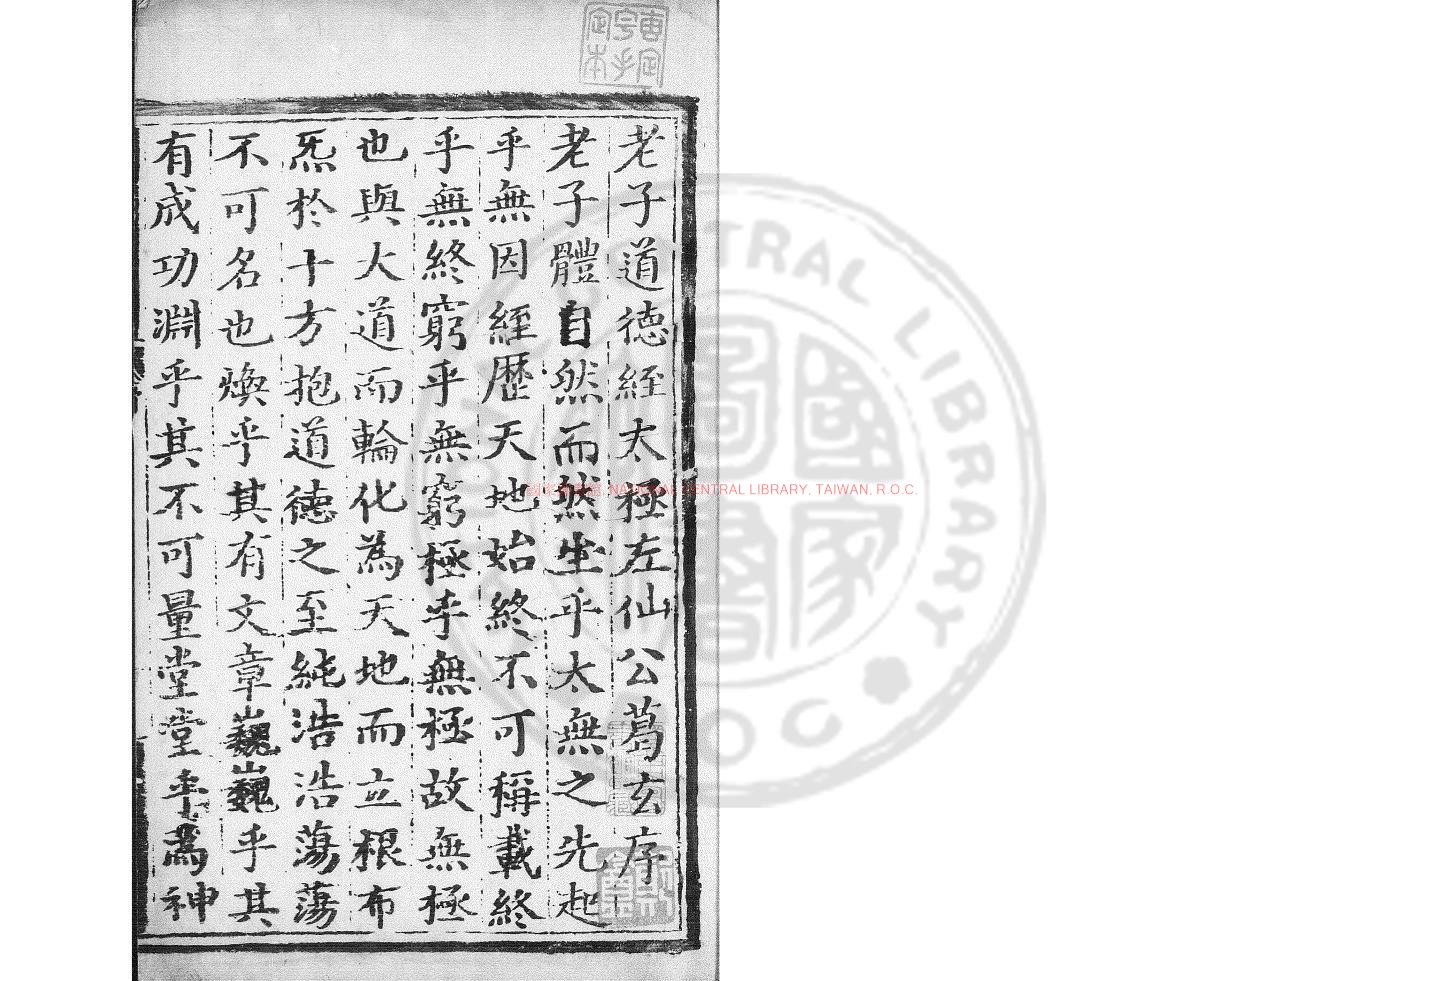 老子道德經太極左仙公葛玄序
老子體自然而然坐乎太無之先起
乎無因經歷天地始終不可稱載終
乎無終窮乎無窮極乎無極故無極
也與大道而輪化為天地而立根布
炁於十方抱道德之至純浩浩蕩蕩
不可名也煥乎其有文章巍巍乎其
有成功淵乎其不可量堂堂乎為神
NATIONAL CENTRAL LIBRARY, TAIWAN, R.O.C.